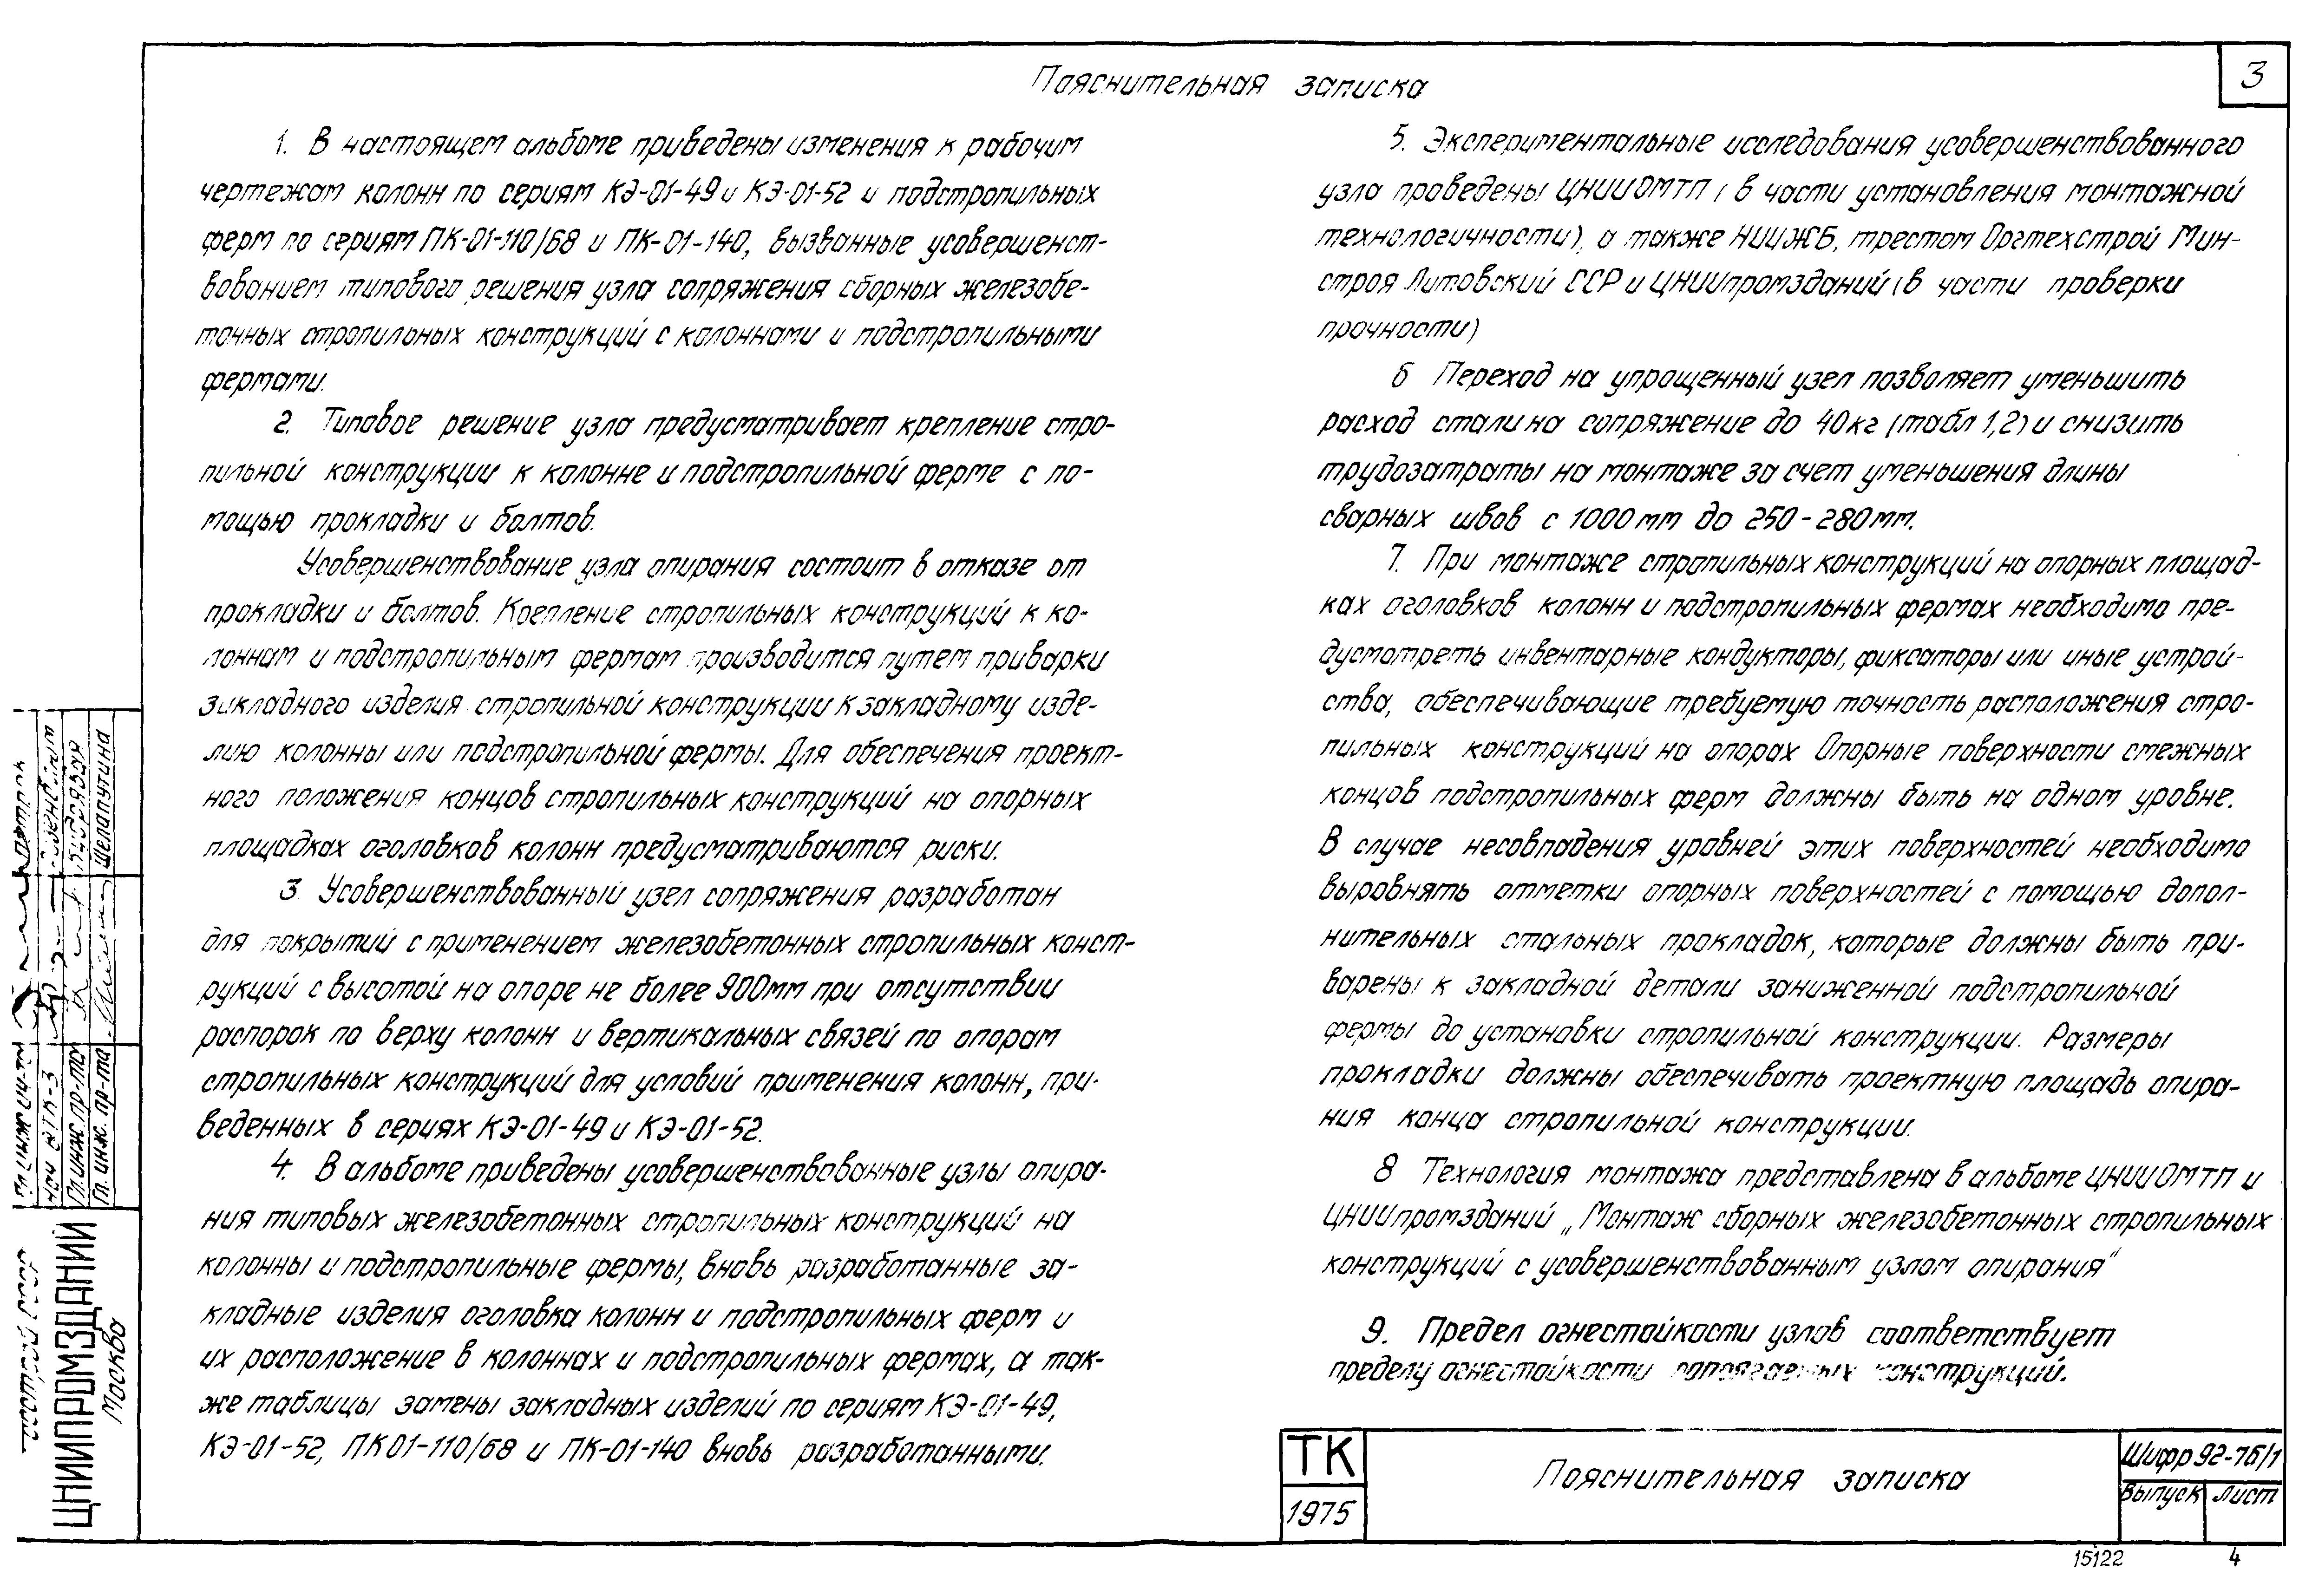 3
Пояснительная записка
1. В настоящем альбоме приведены изменения к рабочим
чертежам колонн по сериям КЭ-01-49 и КЭ-01-52 и подстропильных
ферм по сериям ПК-01-110/68 и ПК-01-140, вызванные усовершенст-
вованием типового решения узла сопряжения сборных железобе-
тонных стропильных конструкций с колоннами и подстропильными
фермами.
2. Типовое решение узла предусматривает крепление стро-
пильной конструкции к колонне и подстропильной ферме с по-
мощью прокладки и болтов.
Усовершенствование узла опирания состоит в отказе от
прокладки и болтов. Крепление стропильных конструкций к ко-
лоннам и подстропильным фермам производится путем приварки
закладного изделия стропильной конструкции к закладному изде-
лию колонны или подстропильной фермы. Для обеспечения проект-
ного положения концов стропильных конструкций на опорных
площадках оголовков колонн предусматриваются риски.
3. Усовершенствованный узел сопряжения разработан
для покрытий с применением железобетонных стропильных конст-
рукций с высотой на опоре не более 900мм при отсутствии
распорок по верху колонн и вертикальных связей по опорам
стропильных конструкций для условий применения колонн, при-
веденных в сериях КЭ-01-49 и КЭ-01-52.
4. В альбоме приведены усовершенствованные узлы опира-
ния типовых железобетонных стропильных конструкций на
колонны и подстропильные фермы, вновь разработанные за-
кладные изделия оголовка колонн и подстропильных ферм и
их расположение в колоннах и подстропильных фермах, а так-
же таблицы замены закладных изделий по сериям КЭ-01-49,
КЭ-01-52, ПК01-110/68 и ПК-01-140 вновь разработанными.
5. Экспериментальные исследования усовершенствованного
узла проведены ЦНИИОМТП (в части установления монтажной
технологичности), а также НИИЖБ, трестом Оргтехстрой Мин-
строя Литовский ССР и ЦНИИпромзданий (в части проверки
прочности)
6 Переход на упрощенный узел позволяет уменьшить
расход стали на сопряжение до 40кг (табл 1,2) и снизить
трудозатраты на монтаже за счет уменьшения длины
сварных швов с 1000мм до 250-280мм.
7. При монтаже стропильных конструкций на опорных площад-
ках оголовков колонн и подстропильных фермах необходимо пре-
дусмотреть инвентарные кондукторы, фиксаторы или иные устрой-
ства, обеспечивающие требуемую точность расположения стро-
пильных конструкций на опорах Опорные поверхности смежных
концов подстропильных ферм должны быть на одном уровне.
В случае несовпадения уровней этих поверхностей необходимо
выровнять отметки опорных поверхностей с помощью допол-
нительных стальных прокладок, которые должны быть при-
варены к закладной детали заниженной подстропильной
фермы до установки стропильной конструкции. Размеры
прокладки должны обеспечивать проектную площадь опира-
ния конца стропильной конструкции.
8 Технология монтажа представлена в альбоме ЦНИИОМТП и
ЦНИИпромзданий „Монтаж сборных железобетонных стропильных
конструкций с усовершенствованным узлом опирания“
9. Предел огнестойкости узлов соответствует
пределу огнестойкости сопрягаемых конструкций.
ТК
1975
Пояснительная записка
Шифр 92-76/1
Выпуск Лист
15122 4
ЦНИИПРОМЗДАНИЙ
Москва
Гл. инж. пр-та
Гл. инж. пр-та Шелапутина